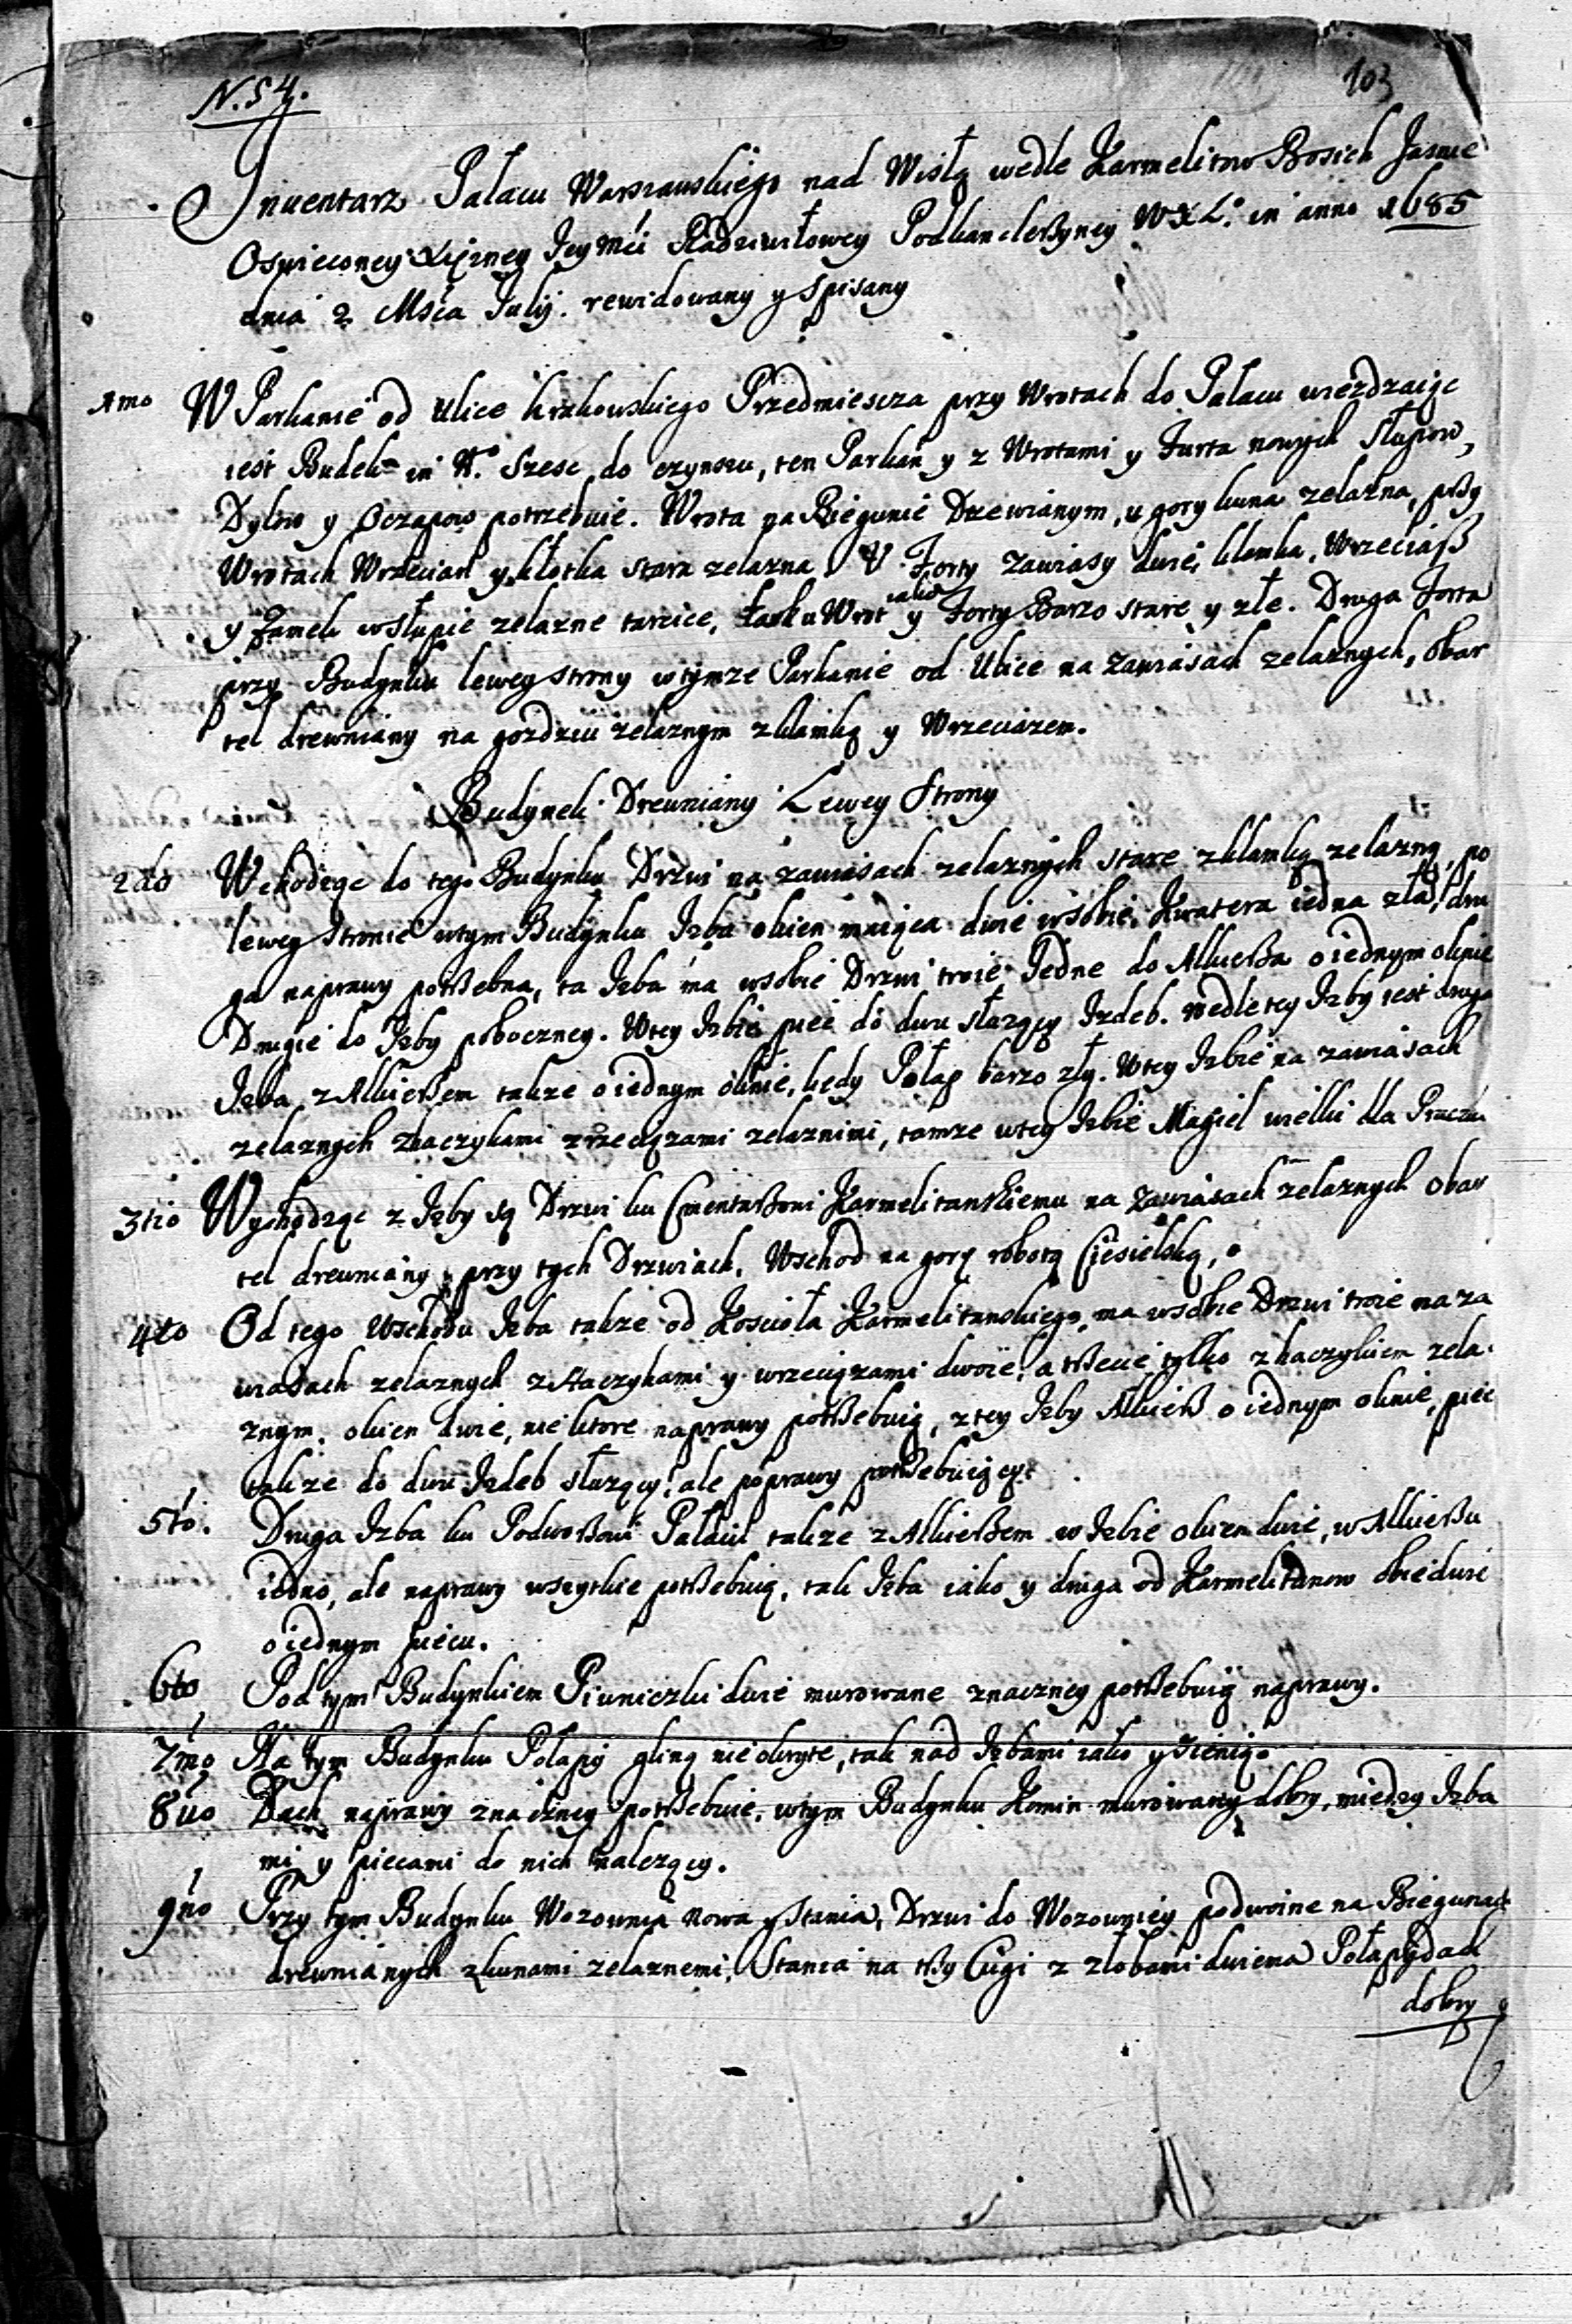 N. 54.
103
Inuentarz Pałacu Warszawskiego nad Wisłą wedle Karmelitow Bosich Jasnie
Oswieconey Xiężney Jey Mći Radziwiłłowey Podkancleßyney W X L. in anno 1685
dnia 2 Msća Julij. rewidowany y spisany
1mo W Parkanie od Ulice Krakowskiego Przedmiescza przy Wrotach do Pałacu wieżdzaiąc
iest Budek in N.o Szesc do czynszu, ten Parkan y z Wrotami y Furta nowych Słupow,
Dylow y Oczapow potrzebuie. Wrota na Biegunie Drzewianym, u gory kuna zelazna, pßy
Wrotach Wrzeciąz y kłotka stara zelazna. U Forty zawiasy dwie, klamka, Wrzeciąß
y Zamek w słupie zelazne tarcice, tak u Wrot iako y Forty Barzo stare y złe. Druga Forta
przy Budynku lewey strony w tymze Parkanie od Ulice na zawiasach zelaznych, obar
tel drewniany na gozdziu zelaznym z klamką y Wrzeciązem.
Budynek Drewniany Lewey Strony
2do Wchodząc do tego Budynku Drzwi na zawiasach zelaznych stare z klamką zelazną, po
lewey stronie w tym Budynku Izba okien maiąca dwie w sobie, Kwatera iedna zła, dru
ga naprawy potßebna, ta Izba ma w sobie Drzwi troie Jedne do Alkierßa o iednym oknie
Drugie do Izby poboczney. W tey Izbie piec do dwu służący Izdeb. wedle tey Izby iest druga
Izba z Alkierßem takze o iednym oknie, kędy Połap barzo zły. W tey Izbie na zawiasach
zelaznych z haczykami z rzeciązami zelaznimi, tamze w tey Izbie Magiel wielki dla Praczek
3tio Wychodząc z Izby są Drzwi ku Cmentarßowi Karmelitanskiemu na zawiasach zelaznych obar
tel drewniany przy tych Drzwiach. Wschod na gorę robotą Ciesielską,
4to Od tego Wschodu Izba takze od Koscioła Karmelitanskiego, ma w sobie Drzwi troie na za
wiasach zelaznych z Haczykami y wrzeciązami dwoie, a tßecie tylko z haczykiem zela-
znym, okien dwie, niektore naprawy potßebuią, z tey Izby Alkierß o iednym oknie, piec
takze do dwu Izdeb służący, ale poprawy potßebuiący.
5to. Druga Izba ku Podworßowi Pałacu takze z Alkierßem w Izbie okien dwie, w Alkierßu
iedno, ale naprawy wszytkie potßebuią, tak Izba iako y druga od Karmelitanow obiedwie
o iednym piecu.
6to Pod tym Budynkiem Piwniczki dwie murowane znaczney potßebuią naprawy.
7mo Na tym Budynku Połapy gliną nie okryte, tak nad Izbami iako y Sienią.
8uo Dach naprawy znaczney potßebuie, w tym Budynku Komin murowany dobry, miedzy Izba
mi y piecami do nich nalezący.
9no Przy tym Budynku Wozownia nowa y Stania, Drzwi do Wozowniey podwoine na Biegunach
drewnianych z kunami zelaznemi, Stania na tßy Cugi z złobami dwiema Połap y dach
dobry